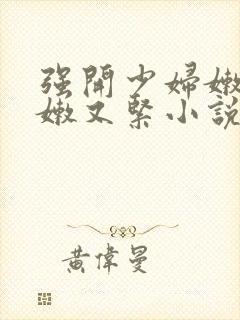 强開少婦嫩
嫩又緊小説
黃偉曼